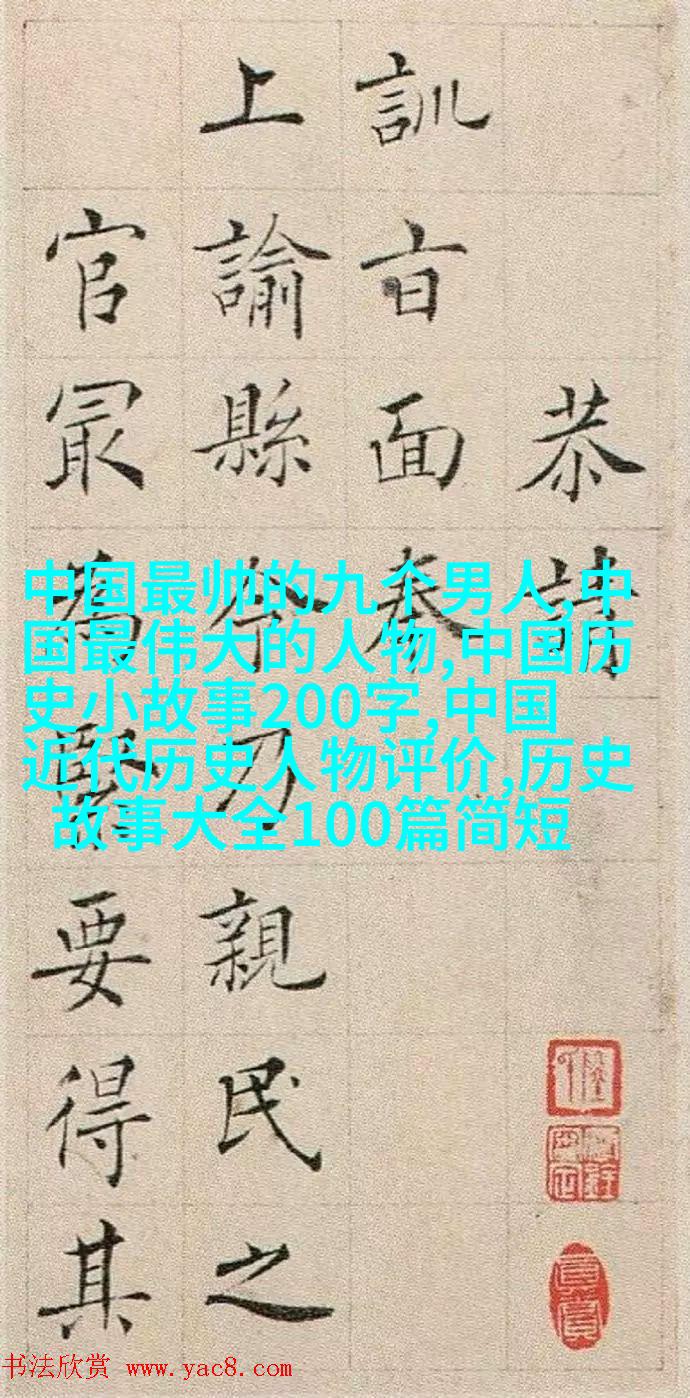 恭請
訓旨面奉
上諭縣令乃親民之
官冣為緊要得其
中国最帅的九个男人,中
国最伟大的人物,中国历
史小故事200字,中国
近代历史人物评价,历史
故事大全100篇简短
书法欣赏 www.yac8.com